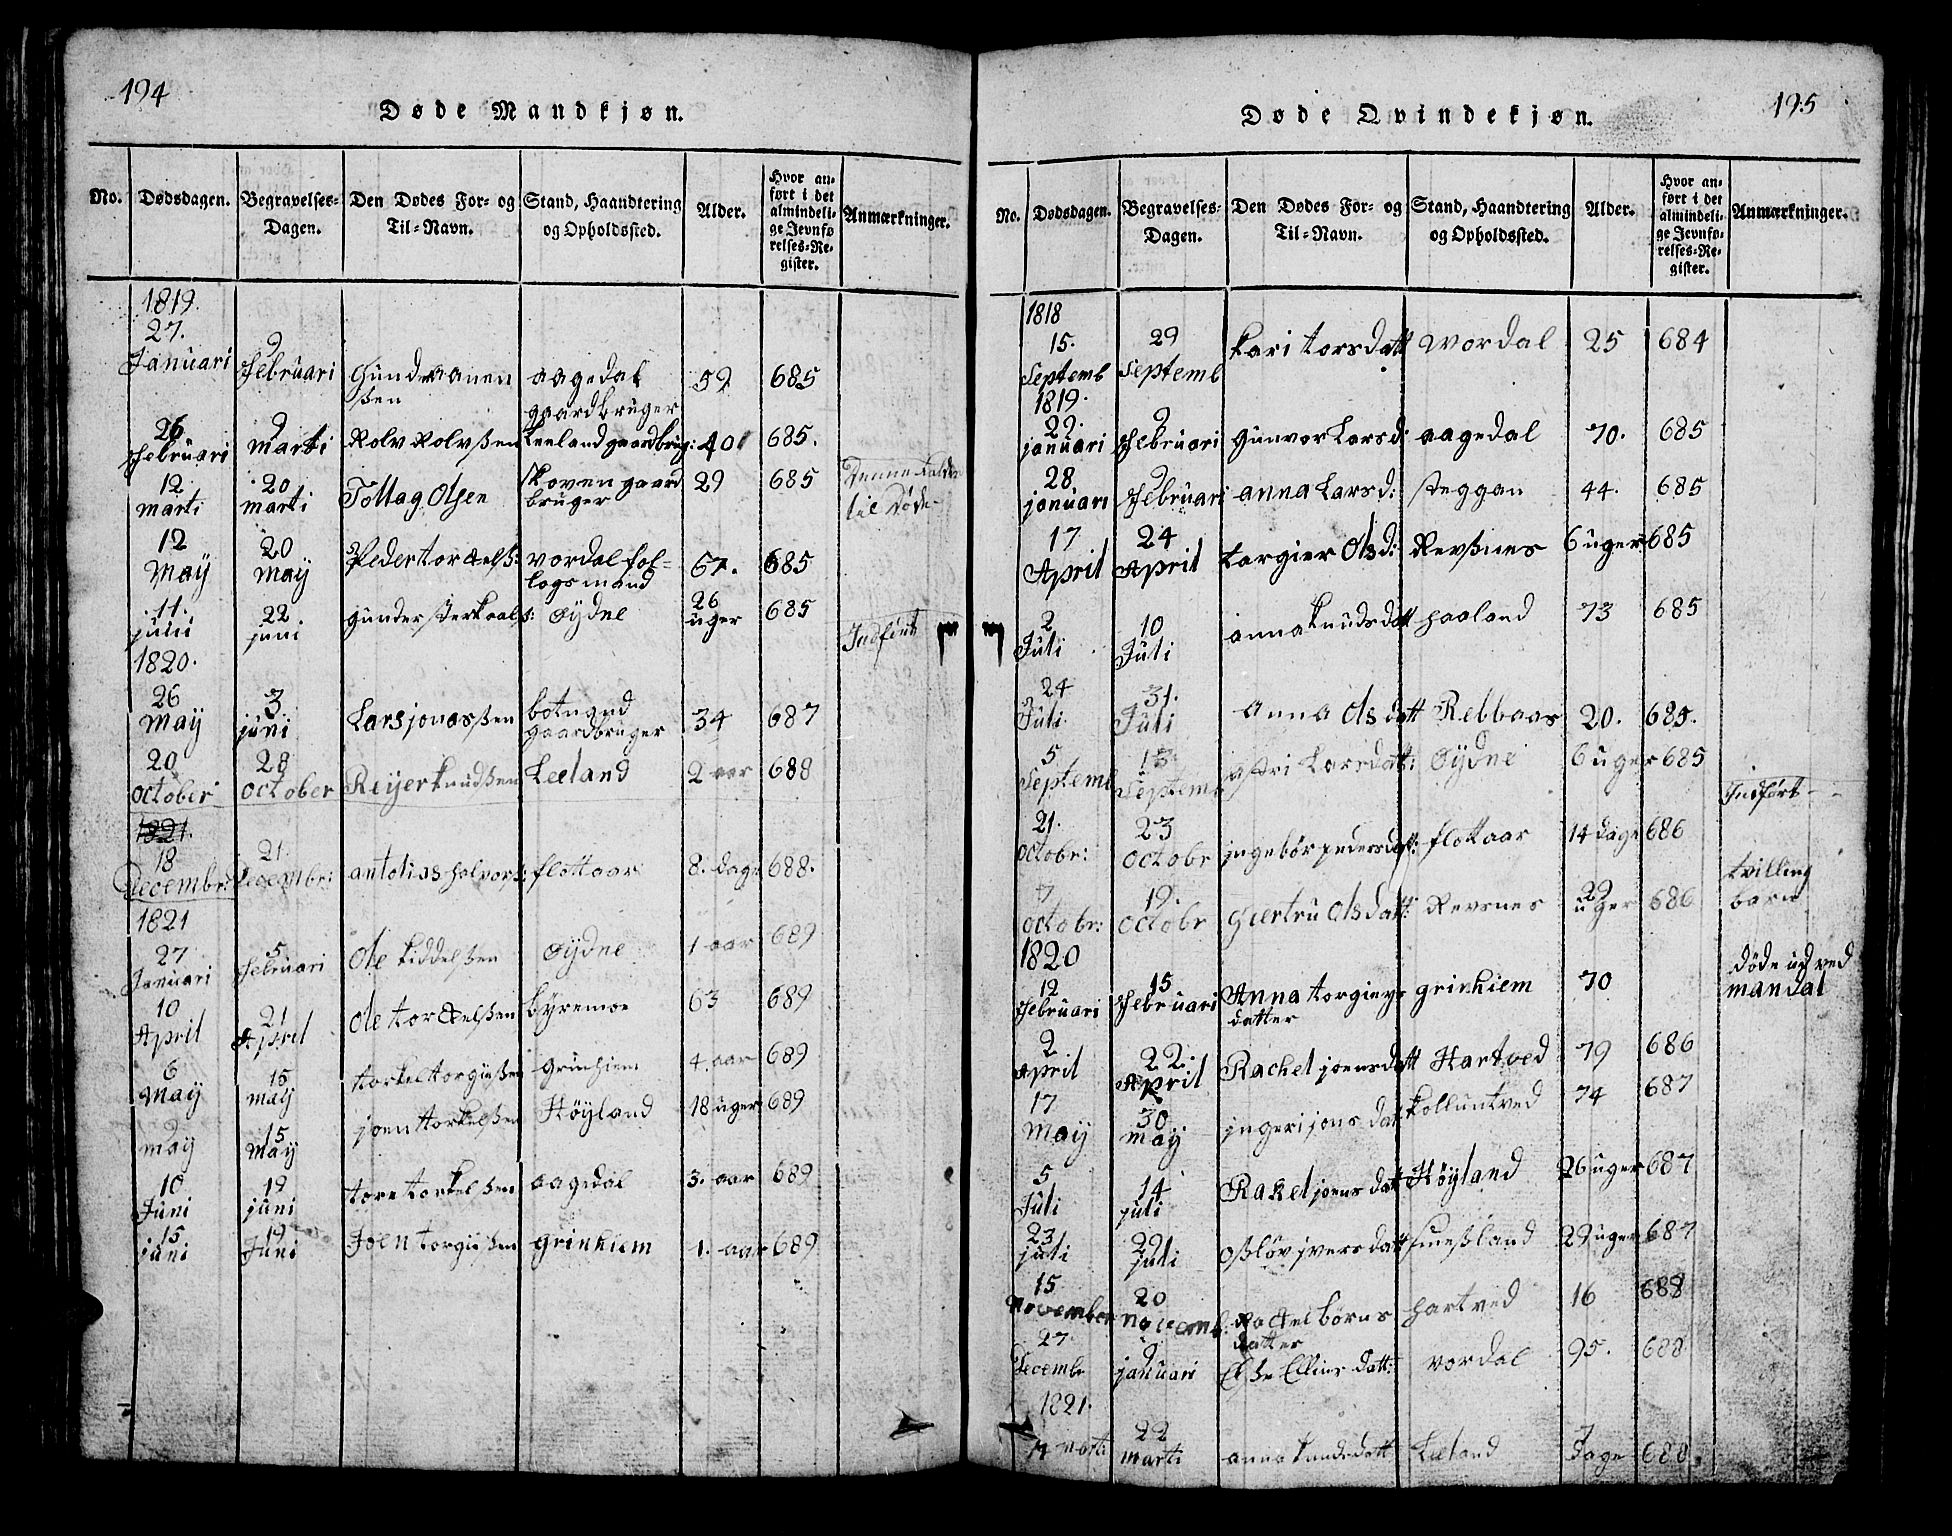 194
Døde Mandkjøn.
No. Dødsdagen. Begravelses-Dagen. Den Dødes For- og Til-Navn. Stand, Haandtering og Opholdssted. Alder. Hvor anført i det almindelige Jevnførelses-Register. Anmærkninger.
1819.
27. Januari 9 Februari Gunder aanensen aagedal gaardbruger 59 685
26 Februari 9 marti Rolv Rolvßen Leeland gaardbrug: 40 685.
12 marti 20 marti Tollag Olsen Skoven gaardbruger 29 685 til Døde
12 May 20 May Peder tor vordal fol=logsmand 67. 685
11. juni 22 juni gunder Øydne 26 uger 685 Indført
1820.
26 May 3 juni Lars jonasßen botnand gaardbruger 34 687
20 October 28 October Reijer knudßen Leeland 2 aar 688
1821.
18 Decembr: 21. Decembr: flottaar 8. dage 688.
1821
27 Januari 5 Februari Ole kiddelßen Øydne 1 aar 689
10 April 21 April Ole tor byremoe 63 689
6 May 15 may torkel torgießen grinhiem 4. aar 689
9 may 15 May joen torkelßen Høyland 18 uger 689
10 Juni 19 juni tore torkelßen aagedal 3. aar 689
15 juni 19 Juni Joen torgießen grinhiem 1. aar 689
195
Døde Qvindekjøn.
No. Dødsdagen. Begravelses-Dagen. Den Dødes For- og Til-Navn. Stand, Haandtering og Opholdssted. Alder. Hvor anført i det almindelige Jevnførelses-Register. Anmærkninger.
1818
15. Septemb 29 Septemb kari torsdatt wordal 25 684
1819.
29. januari 9 Februari gunvor Larsd: aagedal 70. 685
28 januari 9 Februari anna Larsd: steggan 44. 685
17 April 24 April targier Olsd: Revßnes 6 uger 685
2 Juli 10 Juli anna knudsdatt haaland 73 685
24 Juli 31. Juli anna Olsdatt Rebbaas 20. 685.
5 Septemb 13 Septemb astri Larsdatt: Øydne 6 uger 685 Indført
21. Octobr: 23 Octobr ingebør pedersdatt: flottaar 14 dage 686
7 octobr: 19. octobr Giertru Olsdatt: Revsnes 29 uger 686 tvilling barn
1820
12 Februari 15 Februari Anna torgieus datter grinhiem 70 døde ud ved mandal
2 April 22. April Rachel joensdatt Hartved 79 686
17 may 30 may ingeri jonsdatt kolluntved 74 687
5 Juli 14 juli Rakel joensdatt Høyland 26 uger 687
23 juli 29 juli oßløv iversdatt sueßland 29 uger 687
15 November 20 novemb: Rachel børns datter hartved 16 688
27 Decembr 9 januari Elße Ellievsdatt: vordal 95. 688
1821.
14 marti 22 marti anna knudsdatt Leeland 7 dage 688